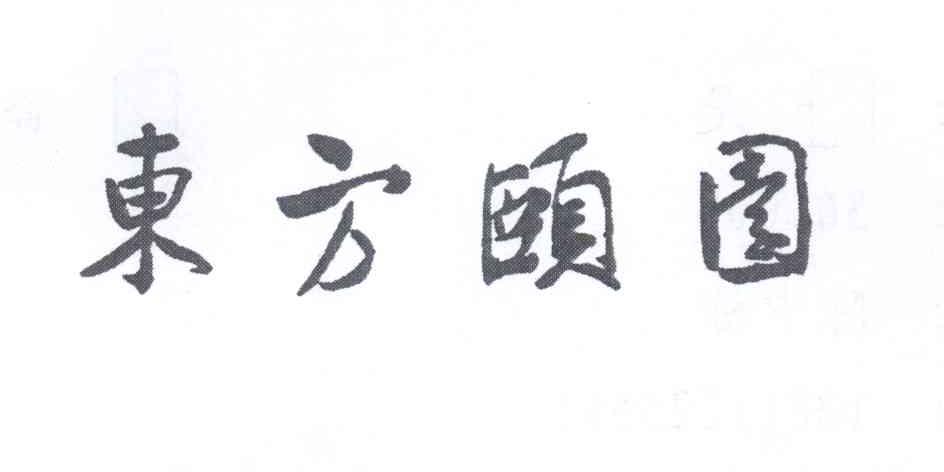 東方頤園